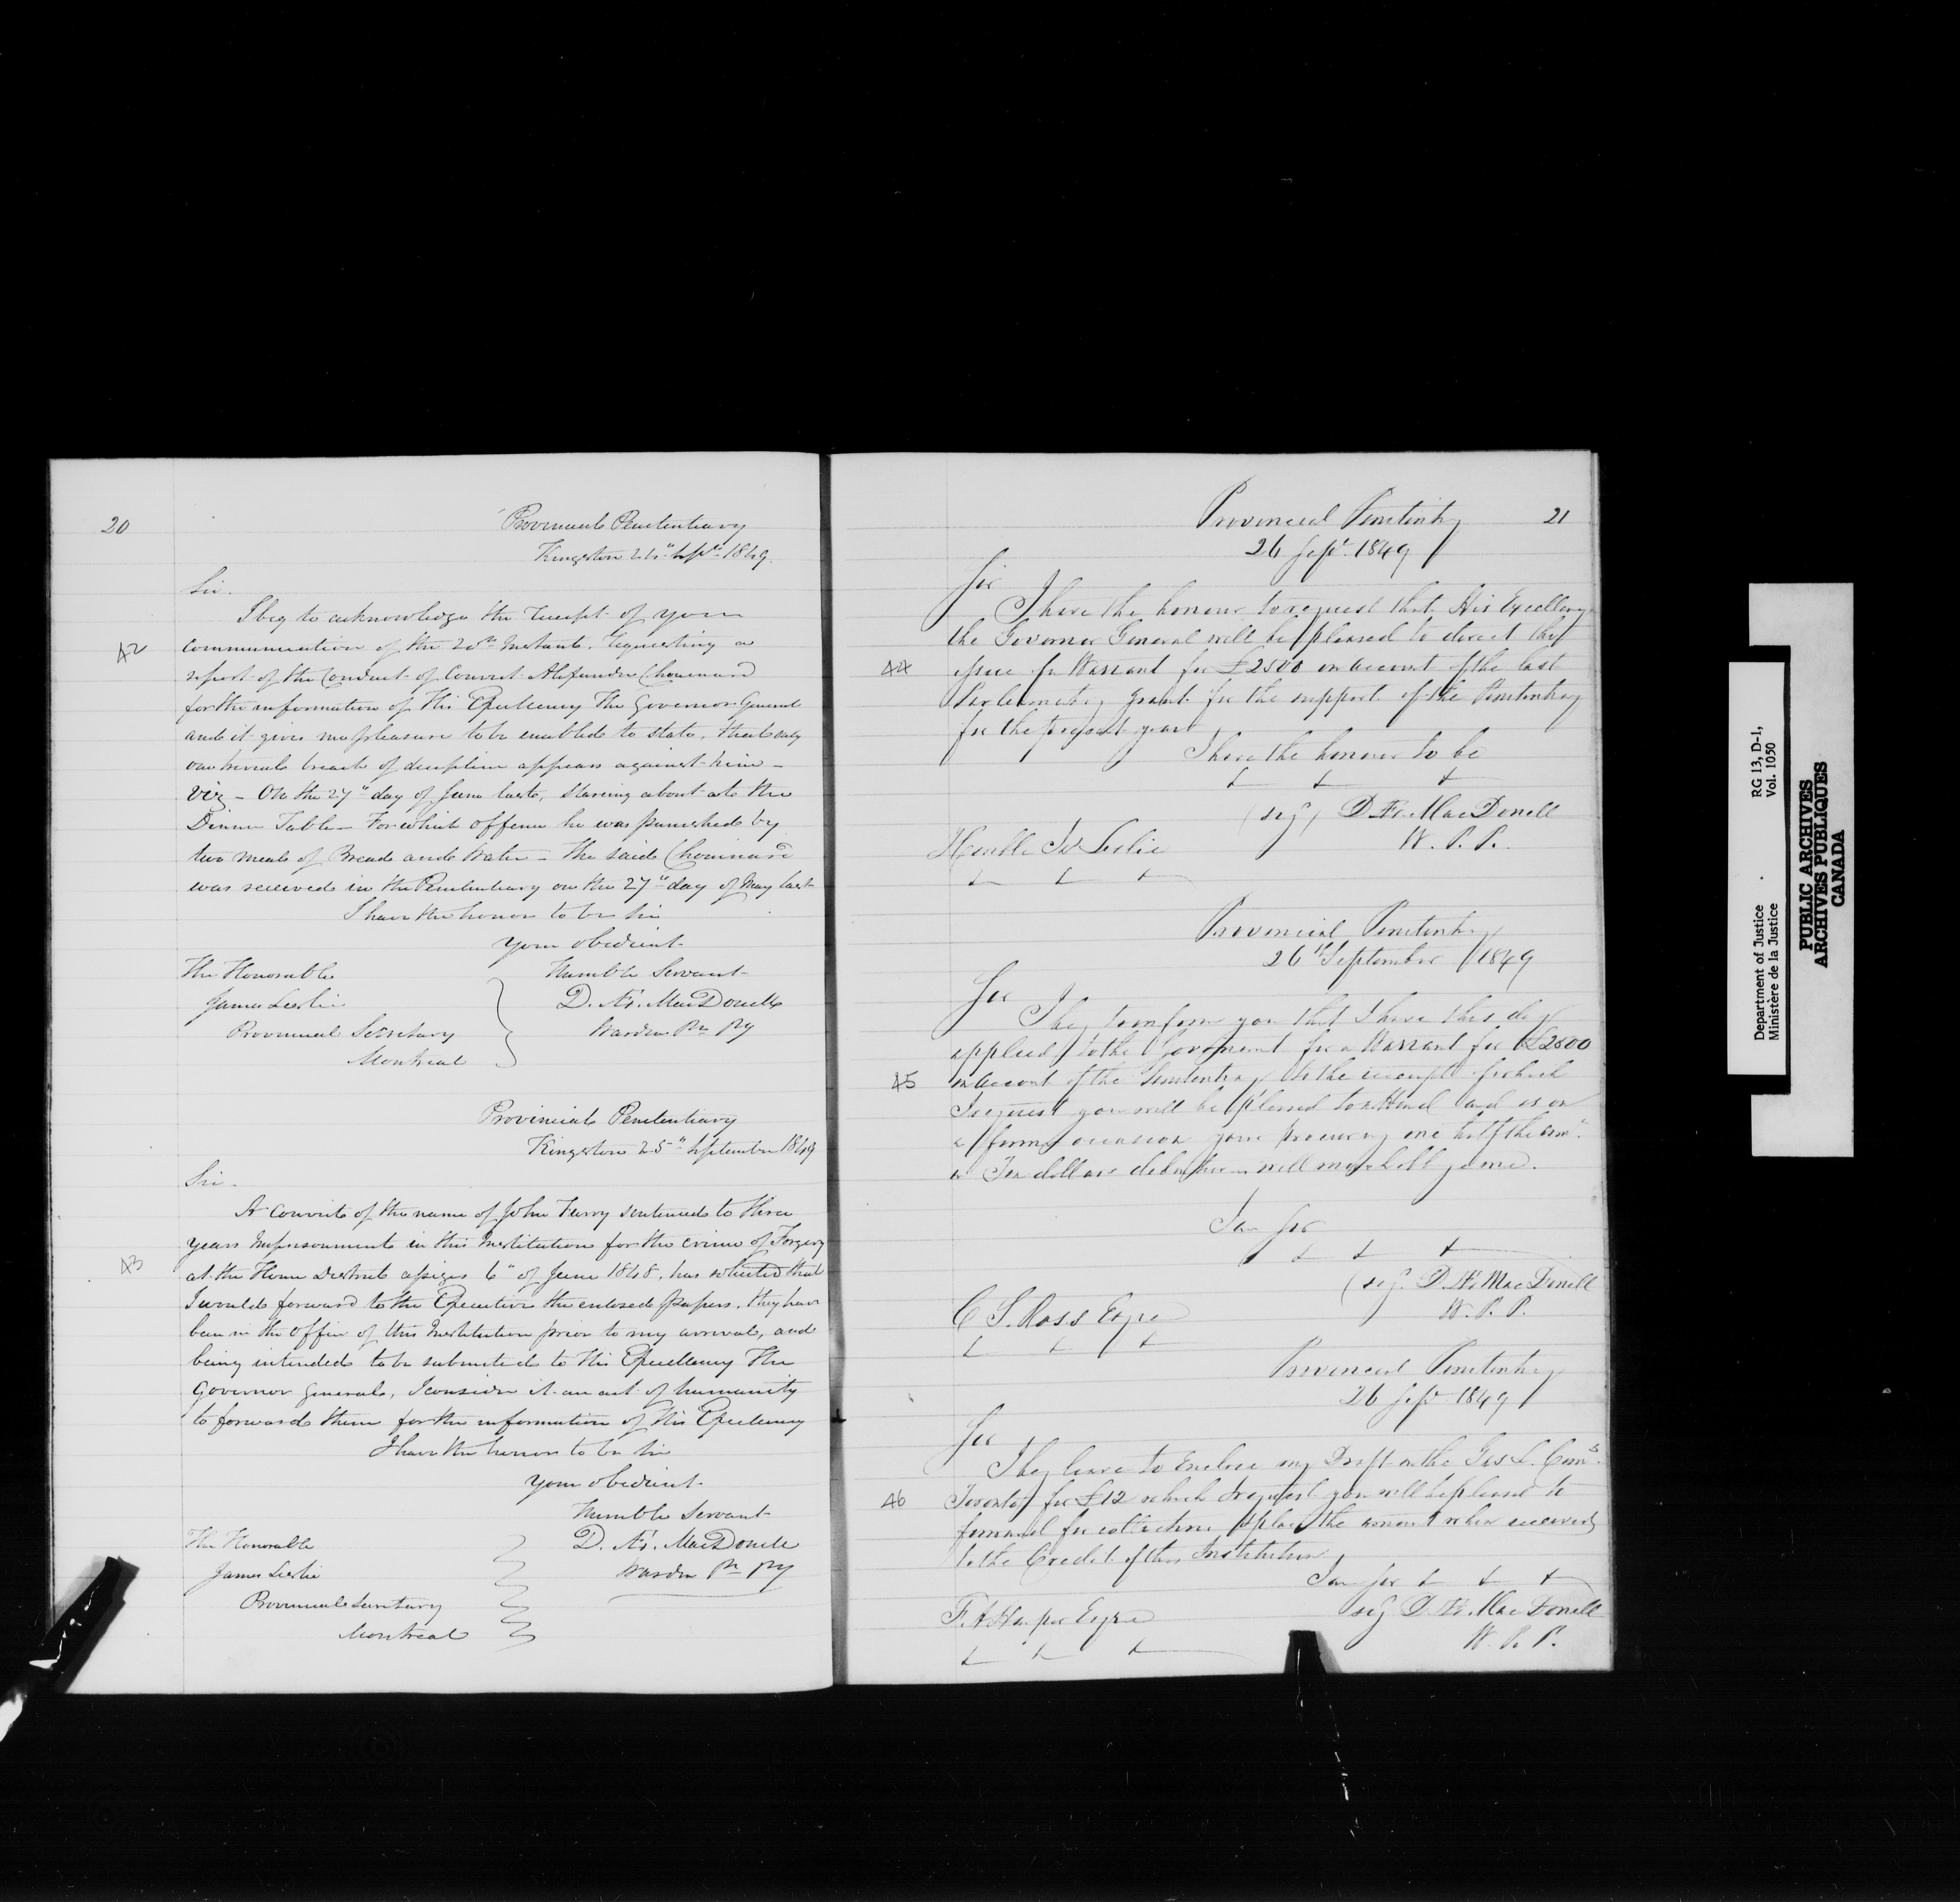 20
Provincial Penitentiary
Kingston 24" Sept 1849.
Sir.
I beg to acknowledge the receipt of your
42
communication of the 20th Instant, requesting a
report of the Conduct of Convict Chouinard
for the information of His Excellency The Governor General
and it gives me pleasure to be enabled to state, that only
one trivial breach of discipline appears against him -
Viz - On the 27" day of June last, Staring about at the
Dinner Table - For which offence he was punished by
two meals of Bread and Water - The said Chouinard
was received in the Penitentiary on the 27" day of May last
I have the honor to be Sir
Your obedient
The Honorable
Humble Servant
James Leslie
D. Æ. MacDonell
Provincial Secretary
Warden Pn Py
Montreal
Provincial Penitentiary
Kingston 25" September 1849
Sir.
A Convict of the name of John sentenced to three
years Imprisonment in this Institution for the crime of Forgery
43
at the Home District assizes 6" of June 1848, has solicited that
I would forward to the Executive the enclosed papers, they have
been in the office of this Institution prior to my arrival, and
being intended to be submitted to His Excellency The
Governor General, I consider it an act of humanity
to forward them for the information of His Excellency
I have the honor to be Sir
Your obedient
Humble Servant
The Honorable
D. Æ. MacDonell
James Leslie
Warden Pn Py
Provincial Secretary
Montreal
21
Provincial Penitentry
26 Sept. 1849
Sir
I have the honour to request that His Excellency
the Governor General will be pleased to direct the
44
issue of a Warrant for £2500 on account of the last
Parliamentary grant for the support of the Penitentiary
for the present year
I have the honour to be
(sig) D. Æ. MacDonell
W. P. P.
Honble Js Leslie
Provincial Penitentry
26th September 1849
Sir
I beg to inform you that I have this day
applied to the Government for a Warrant for £2500
45
on account of the Penitentiary to the receipt of which
I request you will be pleased to attend and as on
a former occasion your procuring one half the amt.
in Ten dollar debentures will much oblige me.
I am Sir
(sig. D. Æ. MacDonell
W. P. P.
C S. Ross Esqre
Provincial Penitentry
26 Sept 1849
Sir
I beg leave to Enclose my Draft on the Gas L. Coms.
46
Toronto for £12 which I request you will be pleased to
forward for collection & place the amount when received
to the Credit of this Institution
I am Sir
sig D. Æ. MacDonell
W. P. P.
F. A Harper Esqre
RG 13, D-1,
Vol. 1050
Department of Justice
Ministère de la Justice
PUBLIC ARCHIVES
ARCHIVES PUBLIQUES
CANADA